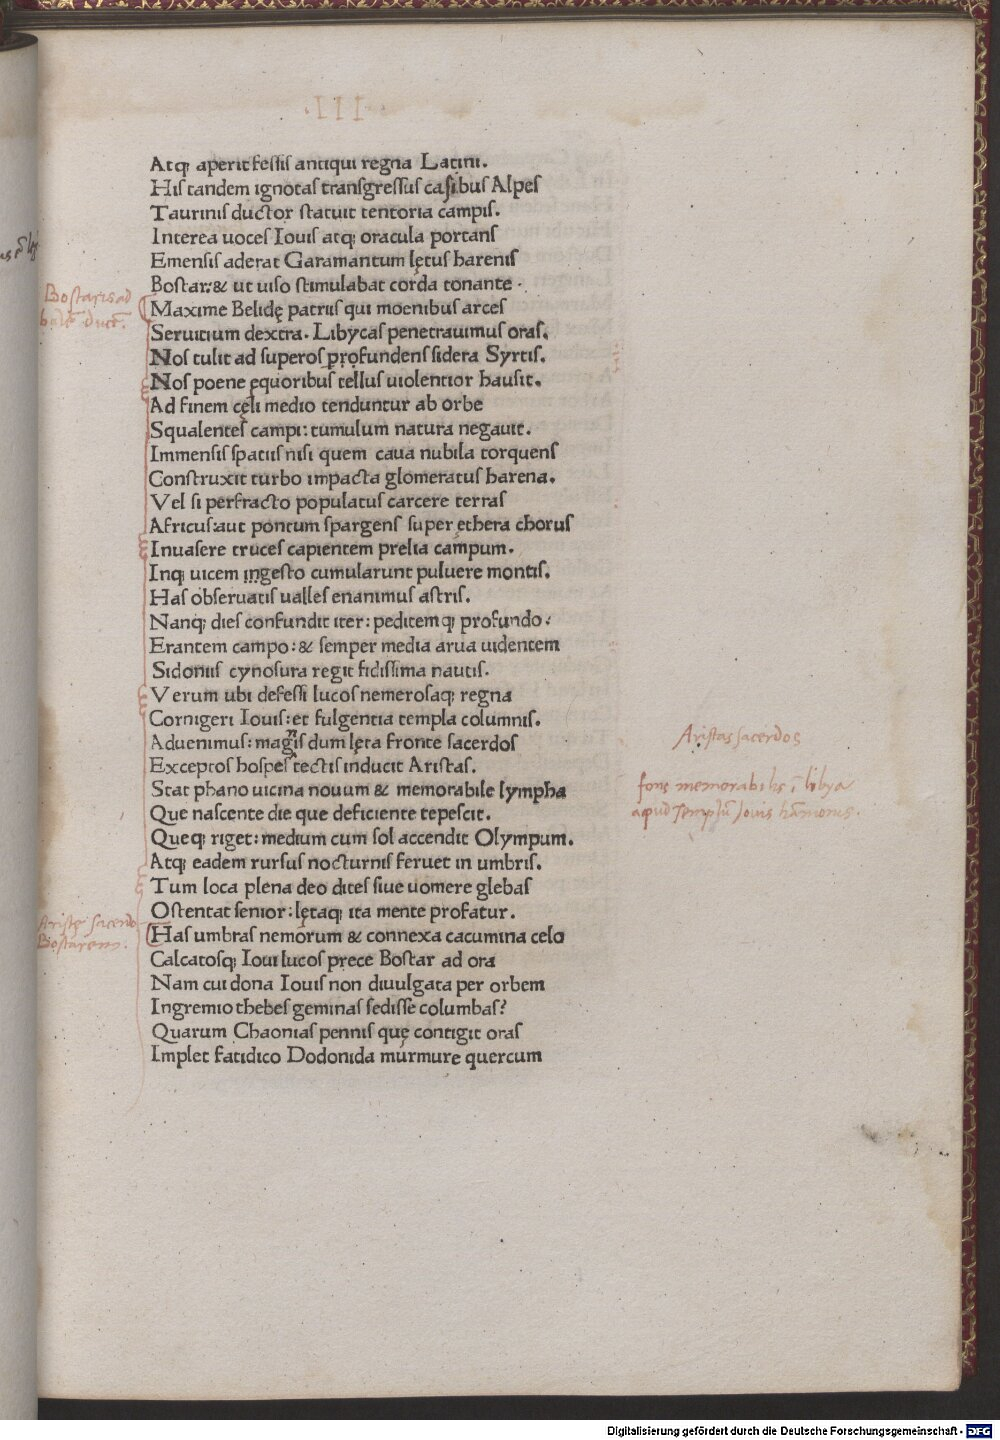 .III.
Atq; aperit fessis antiqui regna Latini.
His tandem ignotas transgressus casibus Alpes
Taurinis ductor statuit tentoria campis.
Interea uoces Iouis atq; oracula portans
Emensis aderat Garamantum lętus harenis
Bostar:& ut uiso stimulabat corda tonante.
Bostaris ad
Maxime Belidę patriis qui moenibus arces
Seruitium dextra. Libycas penetrauimus oras.
Nos tulit ad superos profundens sidera Syrtis.
Nos poene ęquoribus tellus uiolentior hausit.
Ad finem cęli medio tenduntur ab orbe
Squalentes campi: tumulum natura negauit.
Immensis spatiis nisi quem caua nubila torquens
Construxit turbo impacta glomeratus harena.
Vel si perfracto populatus carcere terras
Africus:aut pontum spargens super ęthera chorus
Inuasere truces capientem prelia campum.
Inq; uicem ingesto cumularunt puluere montis.
Has obseruatis ualles enauimus astris.
Nanq; dies confundit iter: peditemq; profundo:
Erantem campo:& semper media arua uidentem
Sidoniis cynosura regit fidissima nautis.
Verum ubi defessi lucos nemerosaq; regna
Cornigeri Iouis: et fulgentia templa columnis.
Aduenimus: magnis dum lęta fronte sacerdos
Aristas sacerdos
Exceptos hospes tectis inducit Aristas.
Stat phano uicina nouum & memorabile lympha
fons memorabilis ī libya
Que nascente die que deficiente tepescit.
apud Templū Iouis hāmonis.
Queq; riget: medium cum sol accendit Olympum.
Atq; eadem rursus nocturnis feruet in umbris.
Tum loca plena deo dites siue uomere glebas
Ostentat senior: lętaq; ita mente profatur.
Aristę sacerdo
Has umbras nemorum & connexa cacumina celo
Bostarem.
Calcatosq; Ioui lucos prece Bostar ad ora
Nam cui dona Iouis non diuulgata per orbem
Ingremio thebes geminas sedisse columbas?
Quarum Chaonias pennis quę contigit oras
Implet fatidico Dodonida murmure quercum
Digitalisierung gefördert durch die Deutsche Forschungsgemeinschaft - DFG